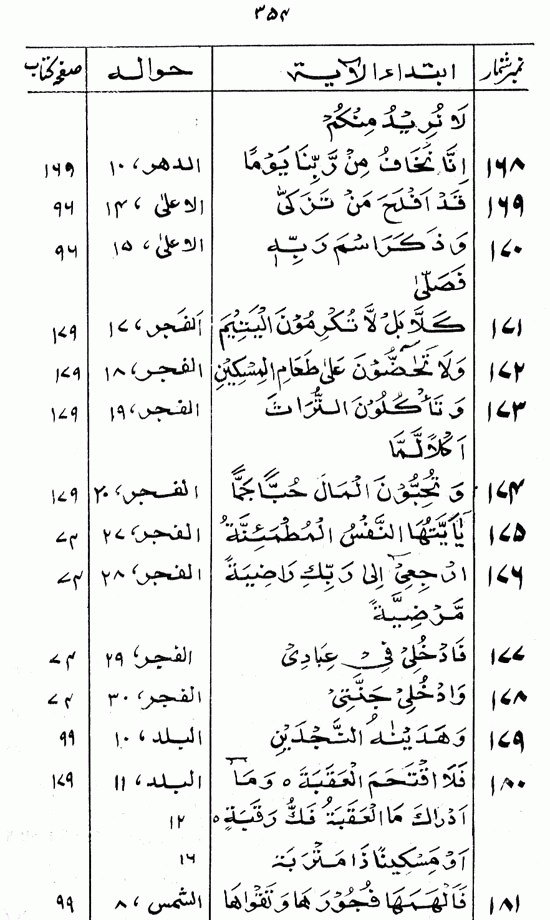 ۳۵۴
نمبر شمار ابتداء الآیۃ حوالہ صفحہ کتاب
لَا نُرِیْدُ مِنْکُمْ
۱۶۸ اِنَّا نَخَافُ مِنْ رَّبِّنَا یَوْمًا الدھر، ۱۰ ۱۶۹
۱۶۹ قَدْ اَفْلَحَ مَنْ تَزَکّٰی الاعلیٰ، ۱۴ ۹۶
۱۷۰ وَ ذَکَرَ اسْمَ رَبِّہٖ الاعلیٰ، ۱۵ ۹۶
فَصَلّٰی
۱۷۱ کَلَّا بَلْ لَّا تُکْرِمُوْنَ الْیَتِیْمَ الفجر، ۱۷ ۱۷۹
۱۷۲ وَلَا تَحٰضُّوْنَ عَلٰی طَعَامِ الْمِسْکِیْنِ الفجر، ۱۸ ۱۷۹
۱۷۳ وَ تَاْکُلُوْنَ التُّرَاثَ الفجر، ۱۹ ۱۷۹
اَکْلًا لَّمًّا
۱۷۴ وَ تُحِبُّوْنَ الْمَالَ حُبًّا جَمًّا الفجر، ۲۰ ۱۷۹
۱۷۵ یٰۤاَیَّتُهَا النَّفْسُ الْمُطْمَئِنَّةُ الفجر، ۲۷ ۷۴
۱۷۶ ارْجِعِیْۤ اِلٰی رَبِّكِ رَاضِیَةً الفجر، ۲۸ ۷۴
مَّرْضِیَّةً
۱۷۷ فَادْخُلِیْ فِیْ عِبَادِیْ الفجر، ۲۹ ۷۴
۱۷۸ وَادْخُلِیْ جَنَّتِیْ الفجر، ۳۰ ۷۴
۱۷۹ وَهَدَیْنٰهُ النَّجْدَیْنِ البلد، ۱۰ ۹۹
۱۸۰ فَلَا اقْتَحَمَ الْعَقَبَةَ ٥ وَمَاۤ البلد، ۱۱ ۱۷۹
اَدْرَاكَ مَا الْعَقَبَةُ فَكُّ رَقَبَةٍ ٥ ۱۲
اَوْ مِسْکِیْنًا ذَا مَتْرَبَة ۱۶
۱۸۱ فَاَلْهَمَهَا فُجُوْرَهَا وَ تَقْوَاهَا الشمس، ۸ ۹۹